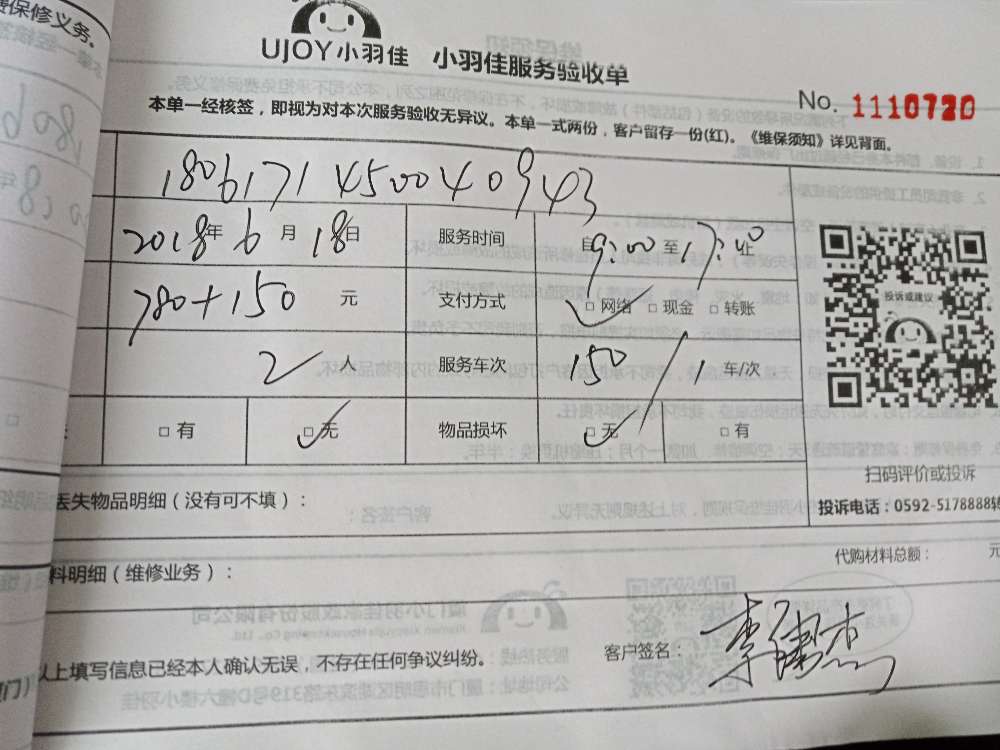 费保修义务。
UJOY小羽佳 小羽佳服务验收单
No. 1110720
本单一经核签，即视为对本次服务验收无异议。本单一式两份，客户留存一份(红)。《维保须知》详见背面。
1806171450040943
2018年6月18日 服务时间 自9:00至17:40止
780+150 元 支付方式 □网络 □现金 □转账
投诉或建议
2人 服务车次 150/1车/次
□有 □无 物品损坏 □无 □有
扫码评价或投诉
丢失物品明细（没有可不填）：
投诉电话：0592-5178888转
代购材料总额： 元
料明细（维修业务）：
以上填写信息已经本人确认无误，不存在任何争议纠纷。
客户签名：李